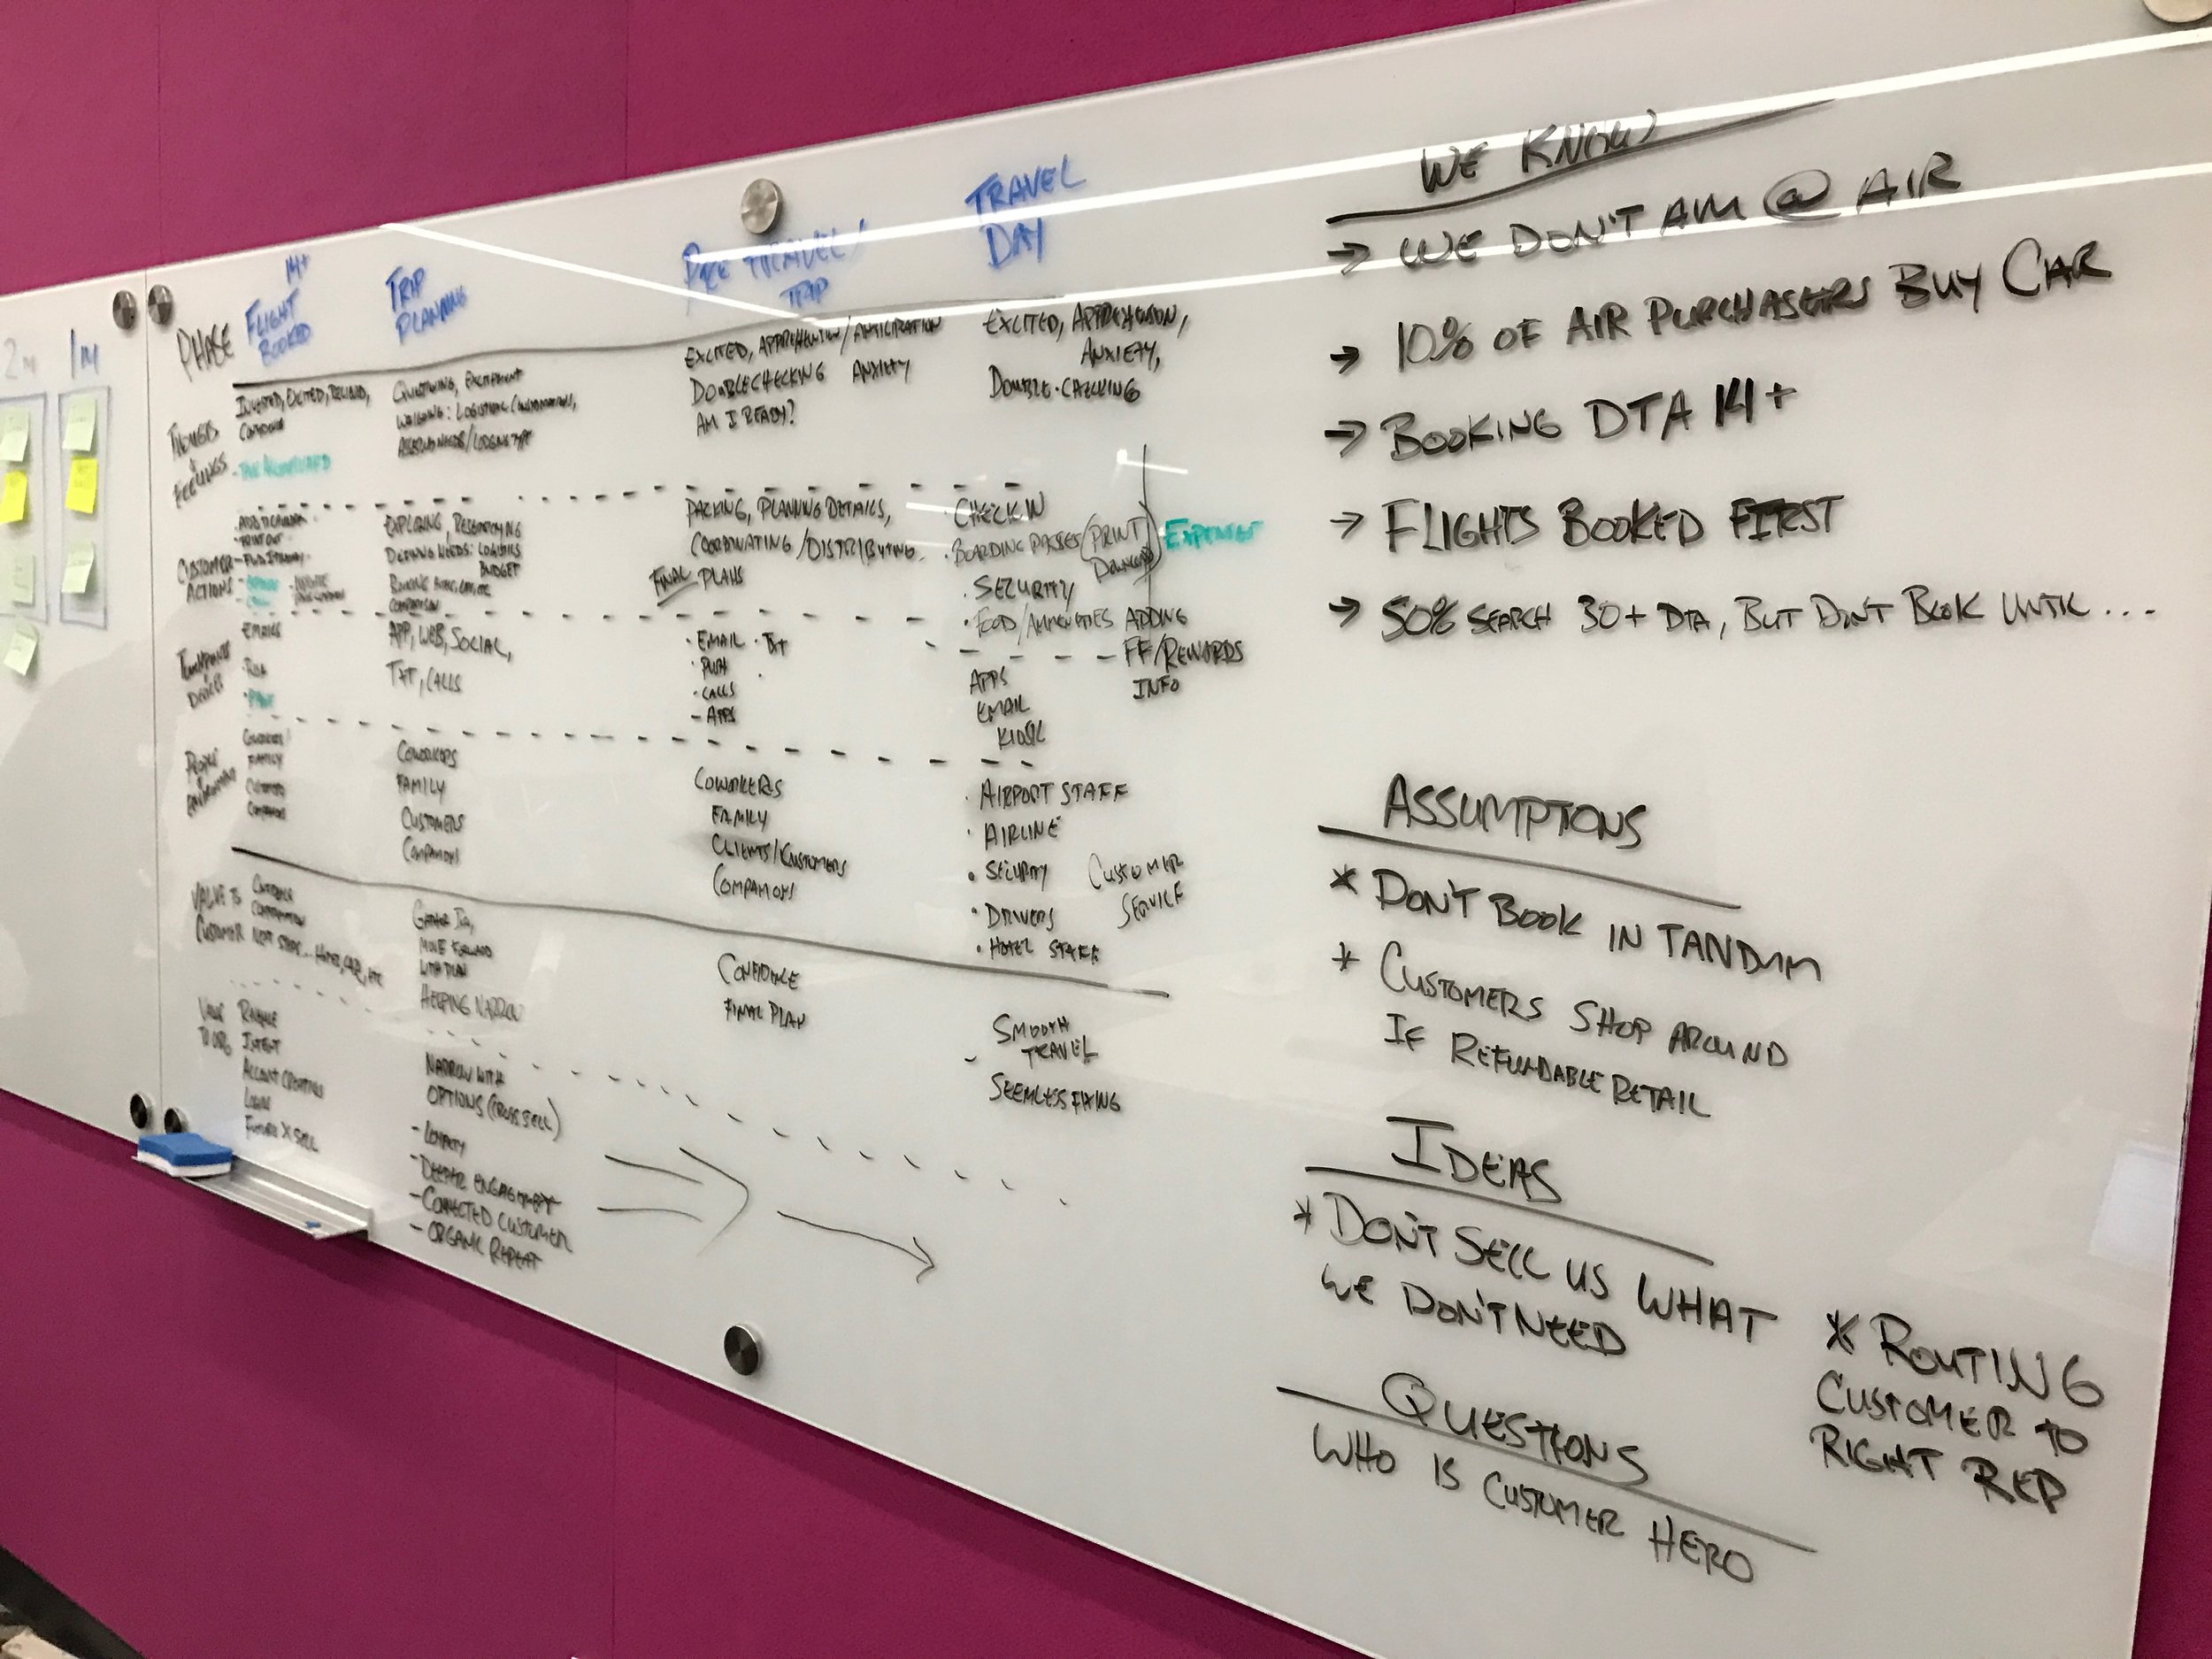 2M
1M
PHASE
14+
FLIGHT
BOOKED
TRIP
PLANNING
PRE TRAVEL/
TRIP
TRAVEL
DAY
THOUGHTS
+
FEELINGS
EXCITED,
QUESTIONING, EXCITEMENT
EXCITED, APPREHENSION/ANTICIPATION
DOUBLECHECKING ANXIETY
AM I READY?
EXCITED, APPREHENSION,
ANXIETY,
DOUBLE-CHECKING
CUSTOMER
ACTIONS
EXPLORING, RESEARCHING
DEFINING NEEDS: LOGISTICS
BUDGET
COMPARISON
PACKING, PLANNING DETAILS,
COORDINATING/DISTRIBUTING
FINAL PLANS
· CHECK IN
· BOARDING PASSES (PRINT
· SECURITY
· FOOD/AMMENITIES
EXPENSE
ADDING
FF/REWARDS
INFO
TOUCHPOINTS
DEVICES
EMAILS
· PRINT
APP, WEB, SOCIAL,
TXT, CALLS
· EMAIL · TXT
· PUSH
· CALLS
- APPS
APPS
EMAIL
KIOSK
PEOPLE
+
ENVIRONMENT
COWORKERS
FAMILY
CUSTOMERS
COMPANIONS
COWORKERS
FAMILY
CUSTOMERS
COMPANIONS
COWORKERS
FAMILY
CLIENTS/KUSTOMERS
COMPANIONS
· AIRPORT STAFF
· AIRLINE
· SECURITY
· DRIVERS
· HOTEL STAFF
CUSTOMER
SERVICE
VALUE TO
CUSTOMER
CONFIDENCE
CONFIRMATION
NEXT STEPS... HOTEL, CAR, ETC
MOVE FORWARD
WITH PLAN
HELPING NARROW
CONFIDENCE
FINAL PLAN
SMOOTH
TRAVEL
SEEMLESS FIXING
VALUE
TO ORG
INTENT
ACCOUNT CREATION
FUTURE X SELL
NARROW WITH
OPTIONS (CROSS SELL)
- LOYALTY
- DEEPER ENGAGMENT
- CONNECTED CUSTOMER
- ORGANIC REPEAT
WE KNOW
→ WE DON'T AM @ AIR
→ 10% OF AIR PURCHASERS BUY CAR
→ BOOKING DTA 14+
→ FLIGHTS BOOKED FIRST
→ 50% SEARCH 30+ DTA, BUT DON'T BOOK UNTIL ...
ASSUMPTIONS
* DON'T BOOK IN TANDUM
* CUSTOMERS SHOP AROUND
IF REFUNDABLE RETAIL
IDEAS
* DON'T SELL US WHAT
WE DON'T NEED
* ROUTING
CUSTOMER TO
RIGHT REP
QUESTIONS
WHO IS CUSTOMER HERO